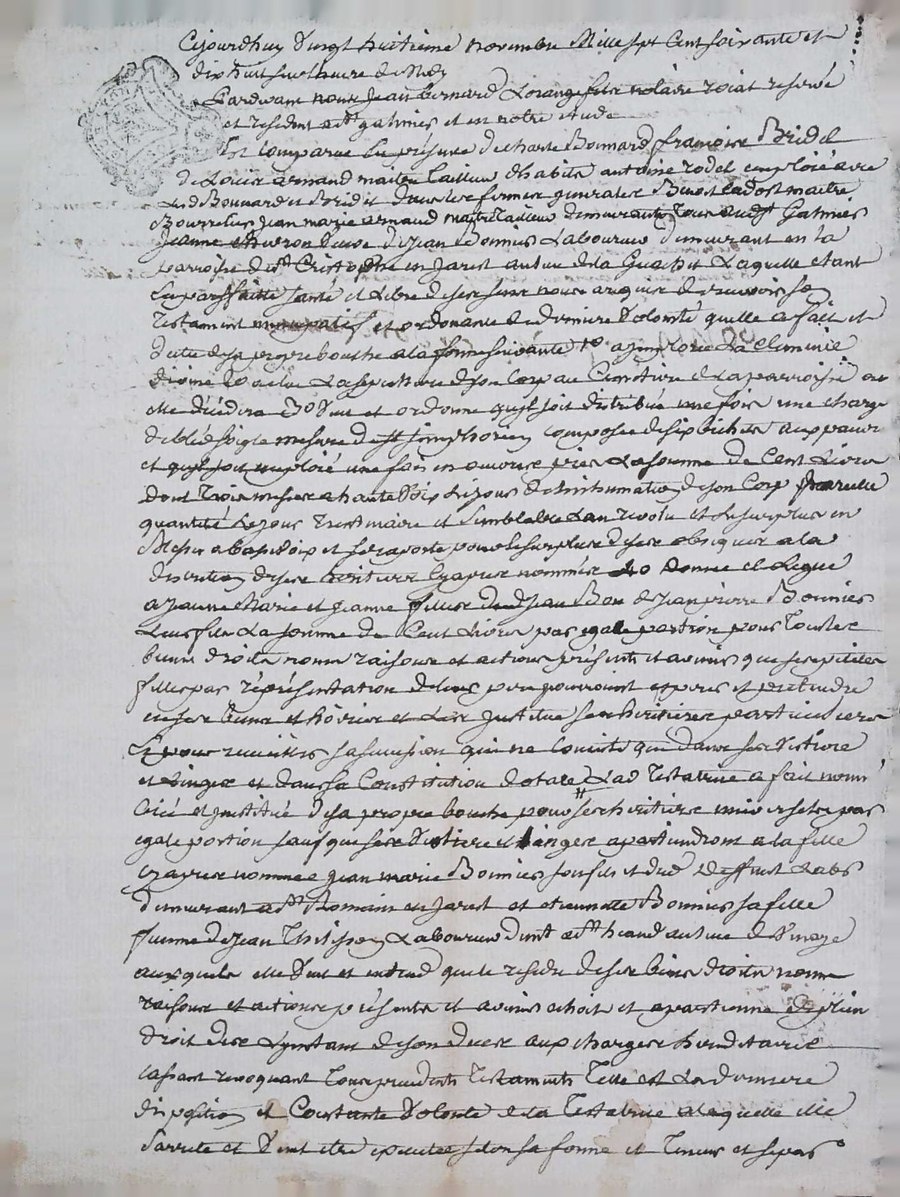 Cejourdhuy vingt huitieme novembre Mille sept Cent soixante et
dix huit sur lheure de Midy
Pardevant nous jean bernard Lorange fils notaire roial reservé
et resident a St galmier et en notre etude
Est comparue en presence de Bonnard françois Bridel
de Louis armand maitre Tailleur dhabits antoine rodel emploié avec
Led Bonnard et Bridel dans les fermes generales Benoit ladost maitre
Bourrelier jean marie armaud maitre Tailleur demeurants Tous aud St Galmier
jeanne veuve de jean Bonnier Laboureur demeurant en la
parroisse de St Cristophe en jarest auteur de la Laquelle etant
en parffaitte santé et Libre de ses sens nous a requis de recevoir son
Testament nuncupatif et ordonance de derniere volonté quelle a fait et
dicté de sa propre bouche a la forme suivante 1o a jmploré La Clemence
divine 2o a elue La sepulture de son Corp au Cimetiere de La parroisse ou
elle décédra 3o veut et ordonne quil soit distribué une fois une charge
de bled seigle mesure de St simphorien composée de six bichets aux pauvres
et quil soit emploié une fois en oeuvres pies La somme de Cent Livres
dont Trois messes a haute voix Le jour de linhumation de son Corp pareille
quantité Le jour Trentenaire et semblable Lan revolu et le surplus en
Messes a basse voix et se raporte pour le surplus de ses obseques a la
discretion de ses heritiers cy apres nommés 4o donne et Legue
a jeanne Marie et jeanne filles de jean pierre Bonnier
Leurs fils La somme de Cent Livres par egale portion pour Tous les
biens droits noms raisons et actions présents et avenir que ses petites
filles par répresentation de leur pere pourroient esperer et pretendre
en ses biens et hoirie et Les jnstitue ses heritieres particulieres
Et pour recueillir sa succession qui ne Consiste que dans ses vestiere
et Linges et dans sa Constitution dotale Lad Testatrice a fait nommé
Créé et jnstitué de sa propre bouche pour ses heritiers universels par
egale portion sauf que ses vestiere et Linges apartiendront a la fille
cy apres nommée jean marie Bonnier son fils et dud deffunt Labr
demeurant a St Romain en jarest et etiennette Bonnier sa fille
femme de jean Laboureur demt a St heand auteur de
auxquels elle veut et entend que le residu de ses biens droits noms
raisons et actions présents et avenir echoit et apartienne de plein
droit des Lynstant de son deces aux charges hereditaires
Cassant revoquant Tous precedents Testaments Telle est La derniere
disposition et Constante volonté de la Testatrice a laquelle elle
sarrete et veut etre executée selon sa forme et Teneur et se pas